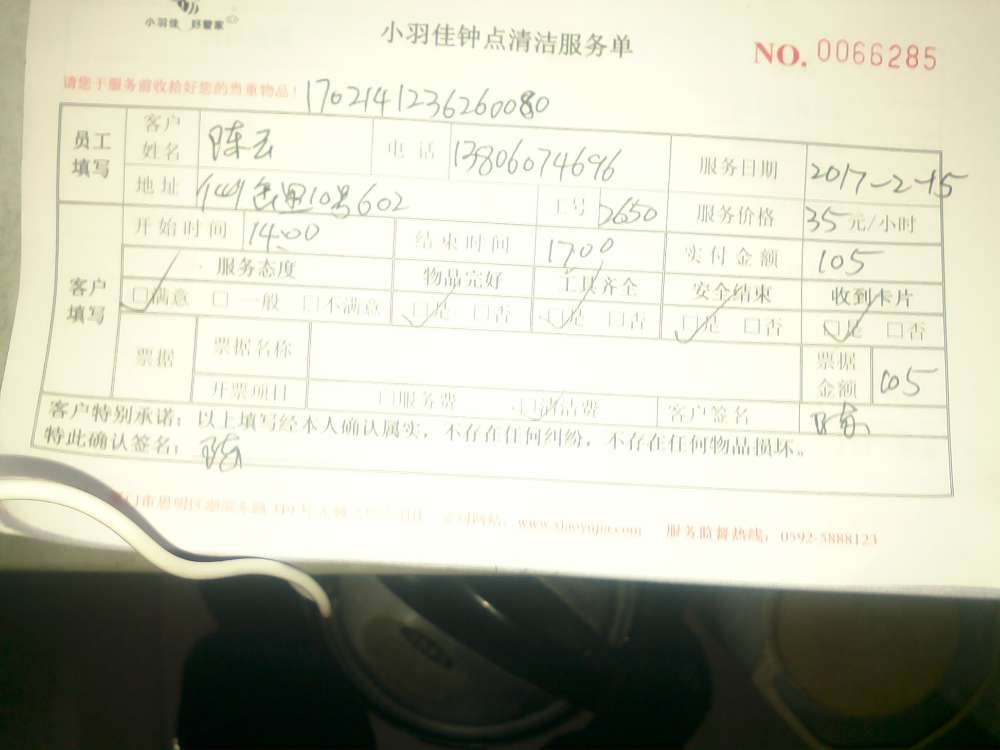 小羽佳 好管家
小羽佳钟点清洁服务单
NO. 0066285
请您于服务前收拾好您的贵重物品！ 1702141236260080
员工填写 客户姓名 陈云 电话 13806074696 服务日期 2017-2-15
地址 10号602 工号 2650 服务价格 35元/小时
客户填写 开始时间 14:00 结束时间 1700 实付金额 105
服务态度 物品完好 工具齐全 安全结束 收到卡片
□满意 □一般 □不满意 □是 □否 □是 □否 □是 □否 □是 □否
票据 票据名称 票据金额 105
开票项目 □服务费 □清洁费 客户签名 陈
客户特别承诺：以上填写经本人确认属实，不存在任何纠纷，不存在任何物品损坏。
特此确认签名： 陈
门市思明区 www.xiaoyujia.com 服务监督热线：0592-5888123